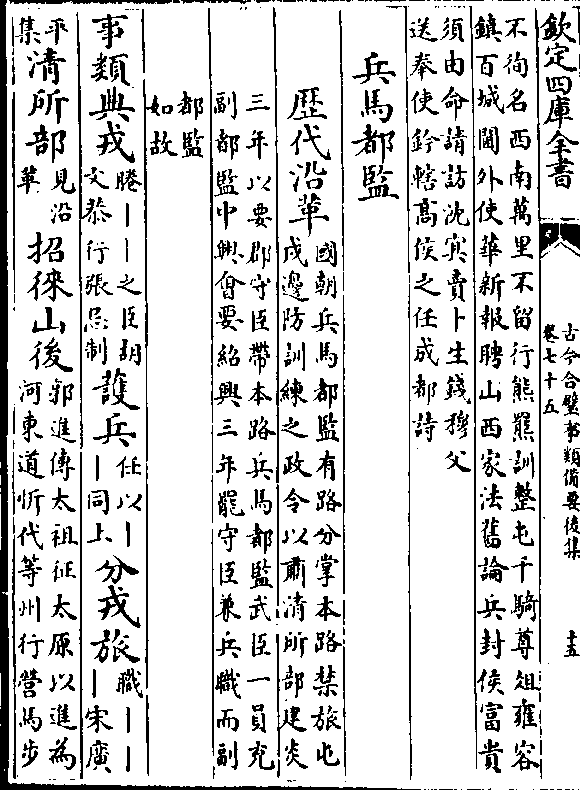 欽定四庫全書
古今合璧事類備要後集
卷七十五
十五
不徇名西南萬里不留行熊羆訓整屯千騎尊俎雍容
鎮百城閫外使華新報聘山西家法舊論兵封侯富貴
須由命請訪沈冥賣卜生錢穆父
送奉使鈐轄髙侯之任成都詩
兵馬都監
歴代沿革 國朝兵馬都監有路分掌本路禁旅屯
戍邊防訓練之政令以肅清所部建炎
三年以要郡守臣帶本路兵馬都監武臣一員充
副都監中興會要紹興三年罷守臣兼兵職而副
都監
如故
事類典戎 膡丨丨之臣胡
文恭行張忌制 護兵 任以丨
丨同上 分戎旅 職丨丨
丨宋廣
平
集 清所部 見沿
革 招徠山後 郭進傳太祖征太原以進為
河東道忻代等州行營馬步